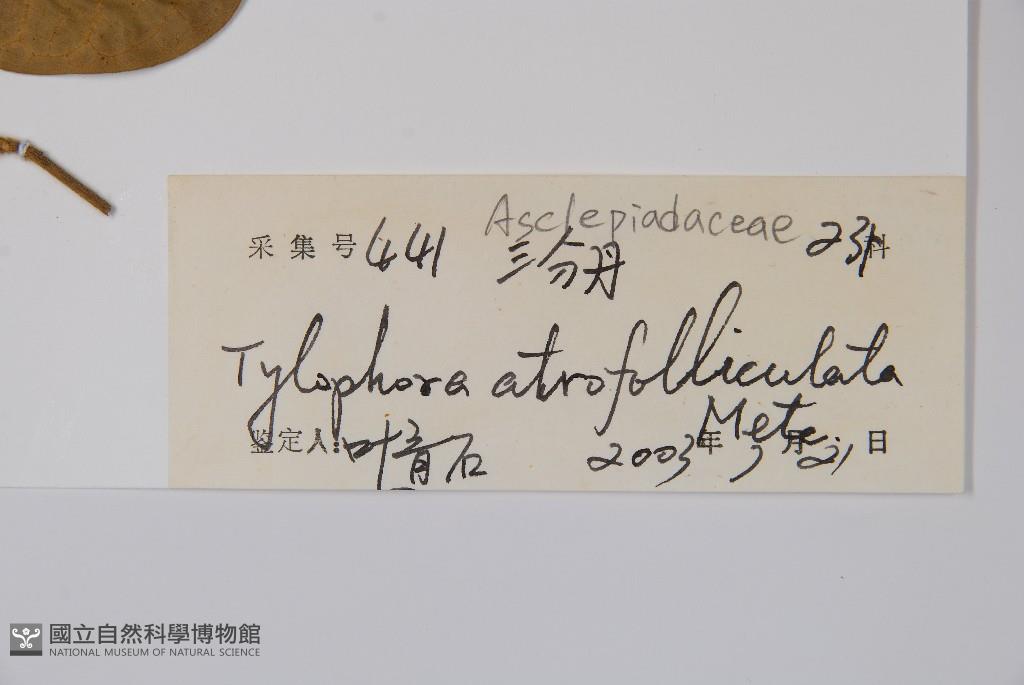 Asclepiadaceae
采集号 441 三分丹 231科
Tylophora atrofolliculata
Metc.
鉴定人:叶育石 2003年3月21日
國立自然科學博物館
NATIONAL MUSEUM OF NATURAL SCIENCE